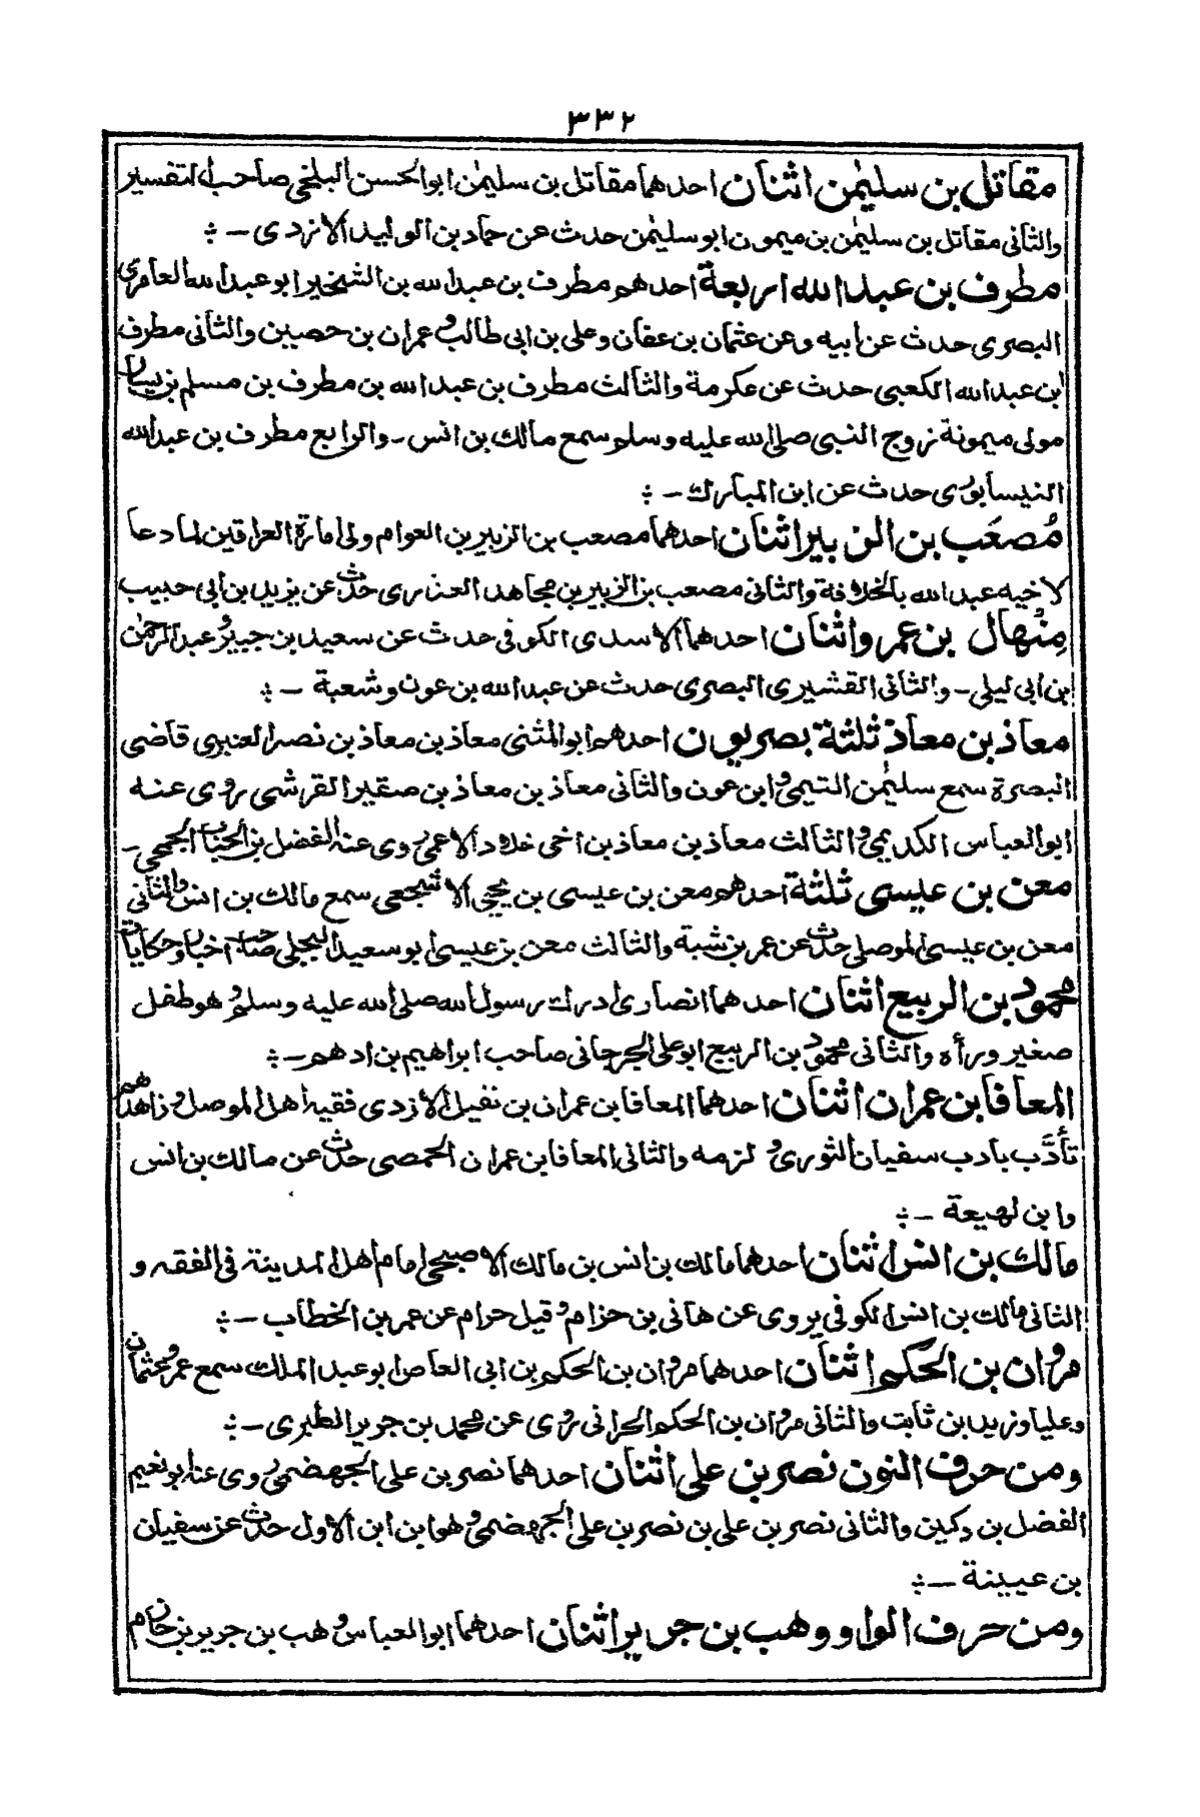 ٣٣٢
مقاتل بن سليمٰن اثنان احدهما مقاتل بن سليمٰن ابوالحسن البلخي صاحب التفسير
والثانى مقاتل بن سليمٰن بن ميمون ابو سليمٰن حدث عن حماد بن الوليد الازدى -
مطرف بن عبد الله اربعة احدهم مطرف بن عبد الله بن الشخير ابو عبد الله العامرى
البصرى حدث عن ابيه وعن عثمان بن عفان وعلى بن ابى طالب وعمران بن حصيين والثانى مطرف
ابن عبد الله الكعبى حدث عن عكرمة والثالث مطرف بن عبد الله بن مطرف بن مسلم بن يسار
مولى ميمونة زوج النبى صلى الله عليه وسلم سمع مالك بن انس - والرابع مطرف بن عبد الله
النيسابورى حدث عن ابن المبارك -
مُصعَب بن الزبير اثنان احدهما مصعب بن الزبير بن العوام ولى امارة العراقين لما دعا
لاخيه عبد الله بالخلافة والثانى مصعب بن الزبير بن مجاهد العذرى حدث عن يزيد بن ابى حبيب
مِنْهال بن عمرو اثنان احدهما الاسدى الكوفى حدث عن سعيد بن جبير وعبد الرحمٰن
بن ابى ليلى - والثانى القشيرى البصرى حدث عن عبد الله بن عون وشعبة -
معاذ بن معاذ ثلثة بصريون احدهم ابوالمثنى معاذ بن معاذ بن نصر العنبرى قاضى
البصرة سمع سليمٰن التيمى وابن عون والثانى معاذ بن معاذ بن صقير القرشى روى عنه
ابوالعباس الكديمى والثالث معاذ بن معاذ بن اخى خلاد الاعمى روى عنه الفضل بن الحباب الجمحى -
معن بن عيسى ثلثة احدهم معن بن عيسى بن يحيى الاشجعى سمع مالك بن انس والثانى
معن بن عيسى الموصلى حدث عن عمر بن شبة والثالث معن بن عيسى ابو سعيد البجلى صاحب اخبار وحكايات
محمود بن الربيع اثنان احدهما انصارى ادرك رسول الله صلى الله عليه وسلم وهو طفل
صغير ورأه والثانى محمود بن الربيع ابو على الجرجانى صاحب ابراهيم بن ادهم -
المعافا بن عمران اثنان احدهما المعافا بن عمران بن نفيل الازدى فقيه اهل الموصل وزاهدهم
تأدَّب بادب سفيان الثورى و لزمه والثانى المعافا بن عمران الحمصى حدث عن مالك بن انس
وابن لهيعة -
مالك بن انس اثنان احدهما مالك بن انس بن مالك الاصبحى امام اهل المدينة فى الفقه و
الثانى مالك بن انس الكوفى يروى عن هانى بن حزام وقيل حرام عن عمر بن الخطاب -
مروان بن الحكم اثنان احدهما مروان بن الحكم بن ابى العاص ابو عبد الملك سمع عمر وعثمان
وعليا وزيد بن ثابت والثانى مروان بن الحكم الحرانى روى عن محمد بن جرير الطبرى -
ومن حرف النون نصر بن على اثنان احدهما نصر بن على الجهضمى روى عنه ابو نعيم
الفضل بن دكين والثانى نصر بن على بن نصر بن على الجهضمى وهو ابن ابن الاول حدث عن سفيان
بن عيينة -
ومن حرف الواو وهب بن جرير اثنان احدهما ابوالعباس وهب بن جرير بن حازم